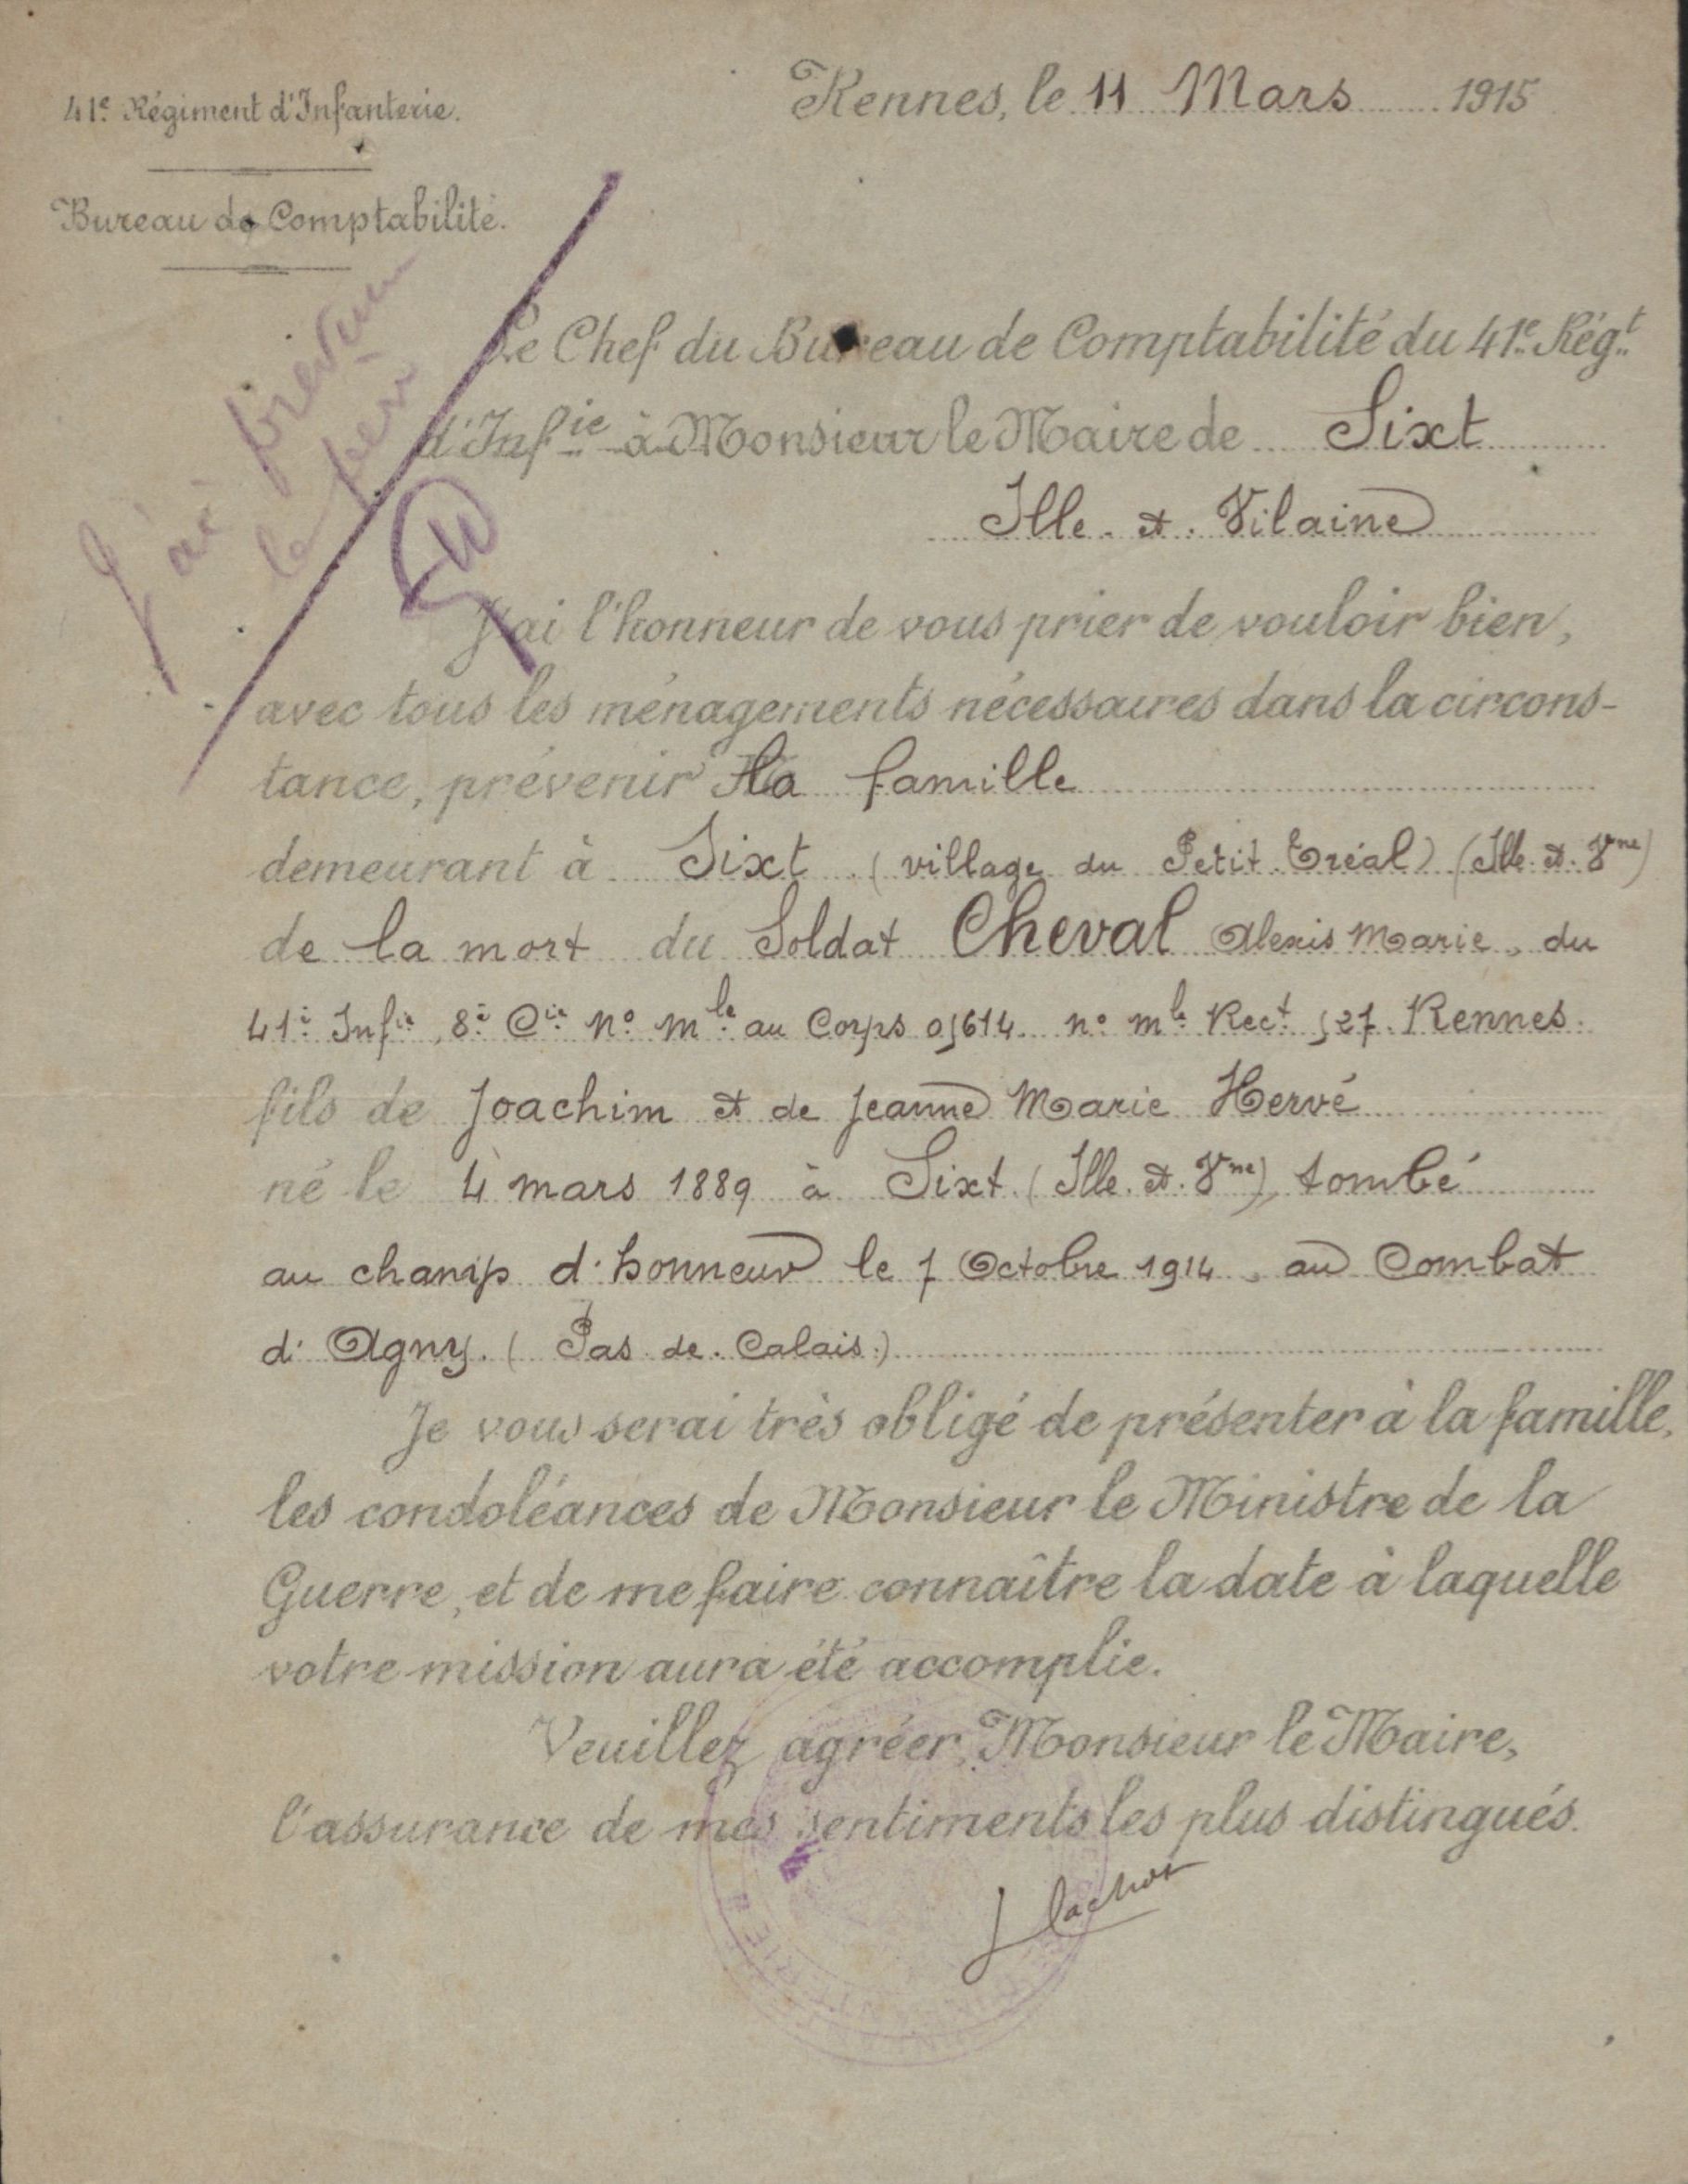 41e Régiment d'Infanterie.
Rennes, le 11 Mars 1915
Bureau de Comptabilité.
J'ai prévenu
le père
Le Chef du Bureau de Comptabilité du 41e Régt
d'Infie à Monsieur le Maire de Sixt
Ille. et. Vilaine
J'ai l'honneur de vous prier de vouloir bien,
avec tous les ménagements nécessaires dans la circons-
tance, prévenir la famille
demeurant à Sixt (village du Petit Tréal) (Ille. et. Vne)
de la mort du Soldat Cheval Alexis Marie, du
41e Infie, 8e Cie No Mle au Corps 05614 no mle Rect 527 Rennes.
fils de Joachim et de Jeanne Marie Hervé
né le 4 mars 1889 à Sixt (Ille. et. Vne), tombé
au champ d'honneur le 7 Octobre 1914, au Combat
d'Agny. (Pas. de. Calais.)
Je vous serai très obligé de présenter à la famille,
les condoléances de Monsieur le Ministre de la
Guerre, et de me faire connaître la date à laquelle
votre mission aura été accomplie.
Veuillez agréer, Monsieur le Maire,
l'assurance de mes sentiments les plus distingués.